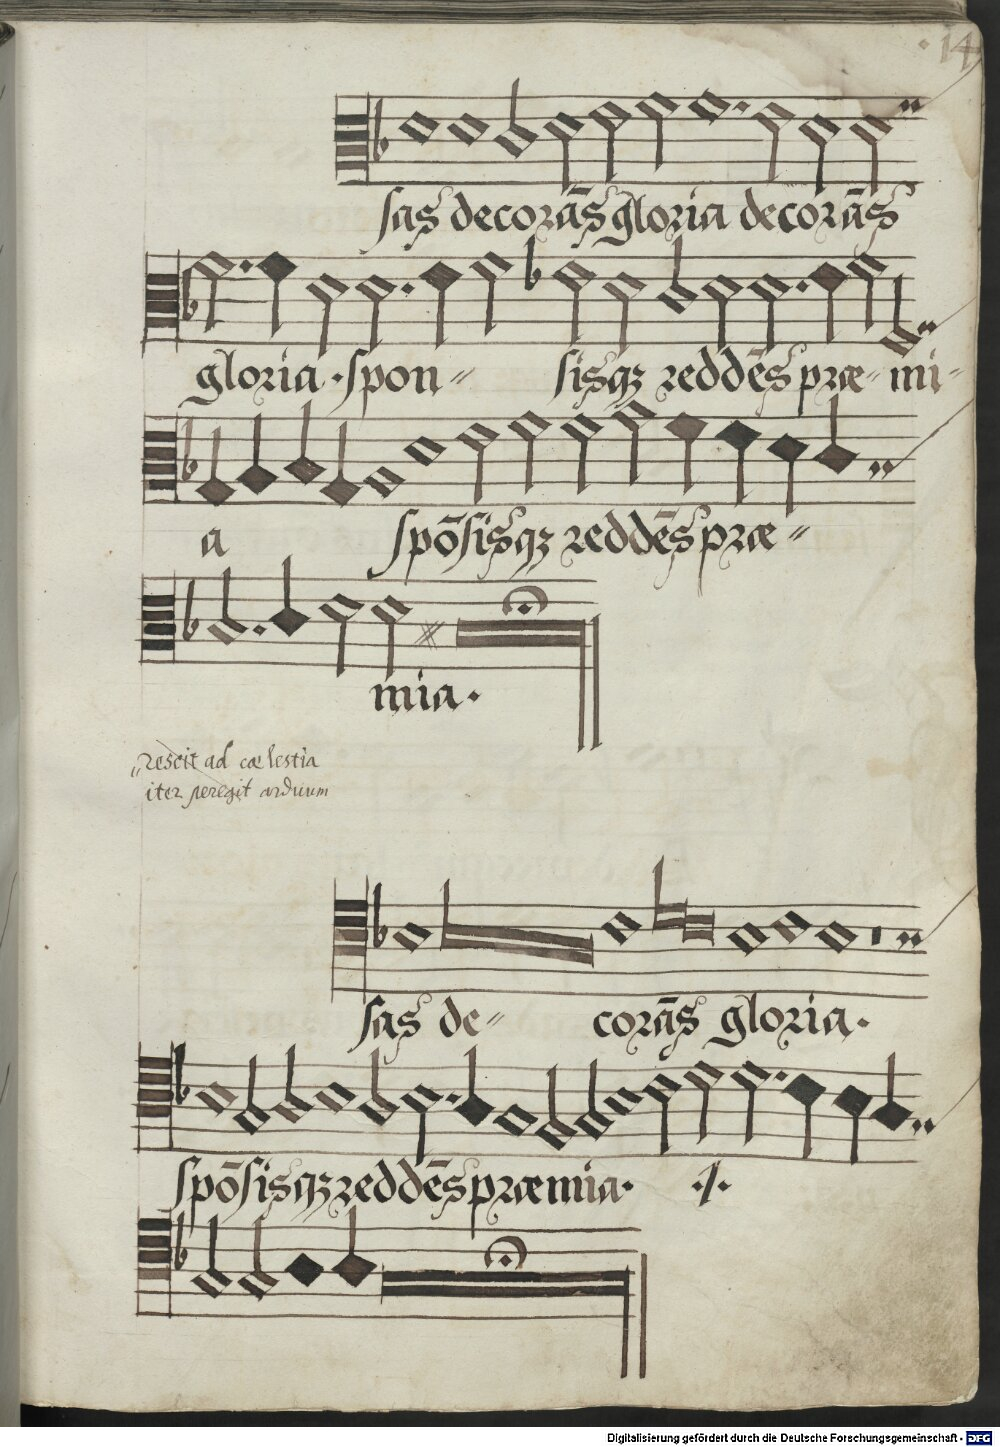 14
sas decorās gloria decorās
gloria · spon〃 sisqꝫ reddēs præ〃 mi〃
a spōsisqꝫ reddēs præ〃
mia ·
rescit ad cælestia
iter peregit arduum
sas de〃 corās gloria ·
spōsisqꝫ reddēs præmia · ·/·
Digitalisierung gefördert durch die Deutsche Forschungsgemeinschaft - DFG